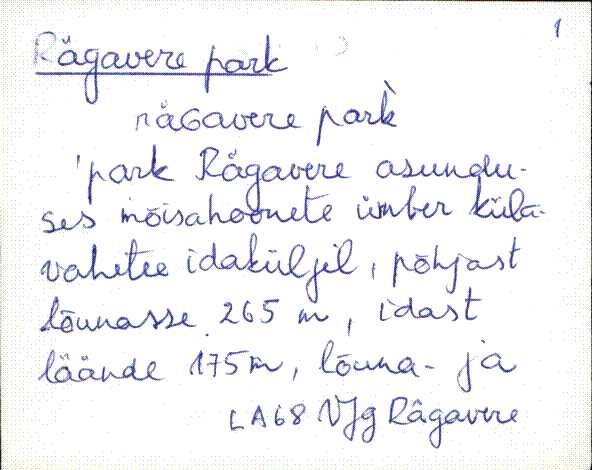 1
Rågavere park
råGavere park̀
'park Rågavere asundu-
ses mõisahoonete ümber küla-
vahetee idaküljel, põhjast
lõunasse 265 m, idast
läände 175 m, lõuna- ja
LA68 VJg Rågavere